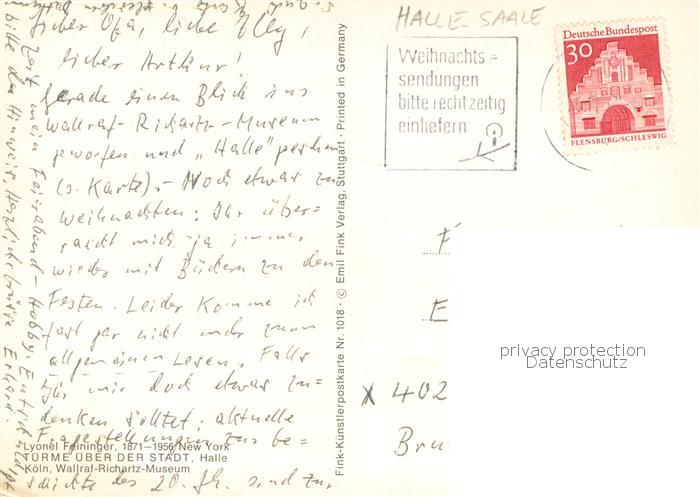 HALLE-SAALE
Deutsche Bundespost
30
FLENSBURG/SCHLESWIG
Weihnachts=
sendungen
bitte rechtzeitig
einliefern
Lieber Opa, liebe Elly,
lieber Arthur!
Gerade einen Blick ins
Wallraf-Richartz-Museum
geworfen und „Halle" gesehen
(s. Karte).- Noch etwas zu
Weihnachten: Ihr über=
rascht mich ja immer
wieder mit Büchern zu den
Festen. Leider komme ich
fast gar nicht mehr zum
allgemeinen Lesen. Falls
Ihr mir doch etwas zu=
denken solltet: aktuelle
Fragestellungen zur Ge=
schichte des 20. Jh. sind zur
Zeit mein Feierabend-Hobby.
bitte den Hinweis. Herzliche Grüße Erhard.
Lyonel Feininger, 1871–1956, New York
TÜRME ÜBER DER STADT, Halle
Köln, Wallraf-Richartz-Museum
Fink-Künstlerpostkarte Nr. 1018 · © Emil Fink Verlag, Stuttgart · Printed in Germany
F
E
x 402
Bru
privacy protection
Datenschutz